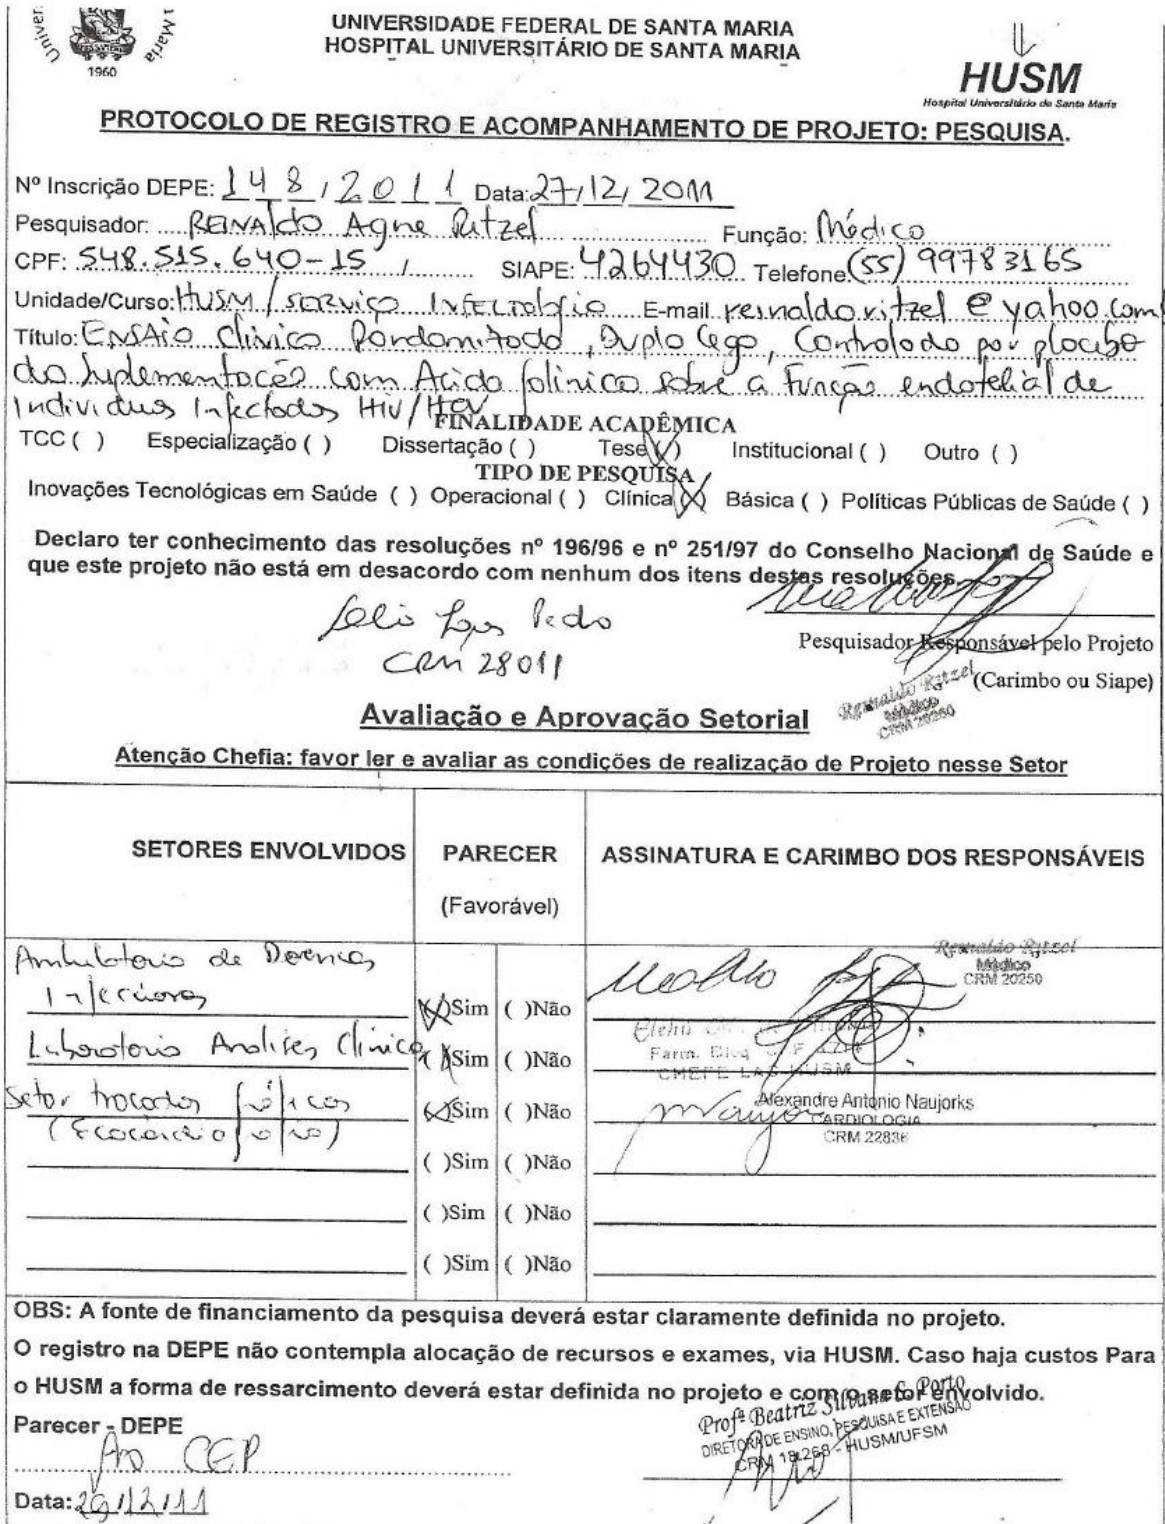 UNIVERSIDADE FEDERAL DE SANTA MARIA
HOSPITAL UNIVERSITÁRIO DE SANTA MARIA
1960
HUSM
Hospital Universitário de Santa Maria
PROTOCOLO DE REGISTRO E ACOMPANHAMENTO DE PROJETO: PESQUISA.
Nº Inscrição DEPE: 148/2011 Data: 27/12/2011
Pesquisador: REINALDO Agne Ritzel Função: Médico
CPF: 548.515.640-15 / SIAPE: 4264430 Telefone (55) 99783165
Unidade/Curso: HUSM / serviço E-mail reinaldoritzel@yahoo.com
Título: ENSAIO Clínico Randomizado, Duplo Cego, Controlado por placebo
da Suplementação com Acido folinico sobre a Função endotelial de
Individuos Infectados HIV/HCV
FINALIDADE ACADÊMICA
TCC ( ) Especialização ( ) Dissertação ( ) Tese (X) Institucional ( ) Outro ( )
TIPO DE PESQUISA
Inovações Tecnológicas em Saúde ( ) Operacional ( ) Clínica (X) Básica ( ) Políticas Públicas de Saúde ( )
Declaro ter conhecimento das resoluções nº 196/96 e nº 251/97 do Conselho Nacional de Saúde e
que este projeto não está em desacordo com nenhum dos itens destas resoluções.
CRM 28011
Pesquisador Responsável pelo Projeto
(Carimbo ou Siape)
Reinaldo Ritzel
Médico
CRM 20250
Avaliação e Aprovação Setorial
Atenção Chefia: favor ler e avaliar as condições de realização de Projeto nesse Setor
SETORES ENVOLVIDOS PARECER (Favorável) ASSINATURA E CARIMBO DOS RESPONSÁVEIS
Ambulatorio de Doenças
Infecciosas (X)Sim ( )Não
Reinaldo Ritzel
Médico
CRM 20250
Laboratorio Analises Clinica (X)Sim ( )Não
CHEFE LAC HUSM
Setor (X)Sim ( )Não
Alexandre Antonio Naujorks
CARDIOLOGIA
CRM 22836
( )Sim ( )Não
( )Sim ( )Não
( )Sim ( )Não
OBS: A fonte de financiamento da pesquisa deverá estar claramente definida no projeto.
O registro na DEPE não contempla alocação de recursos e exames, via HUSM. Caso haja custos Para
o HUSM a forma de ressarcimento deverá estar definida no projeto e com o setor envolvido.
Parecer - DEPE
Ao CEP
Profª Beatriz Silvana S. Porto
DIRETORA DE ENSINO, PESQUISA E EXTENSÃO
CRM 18.268 - HUSM/UFSM
Data: